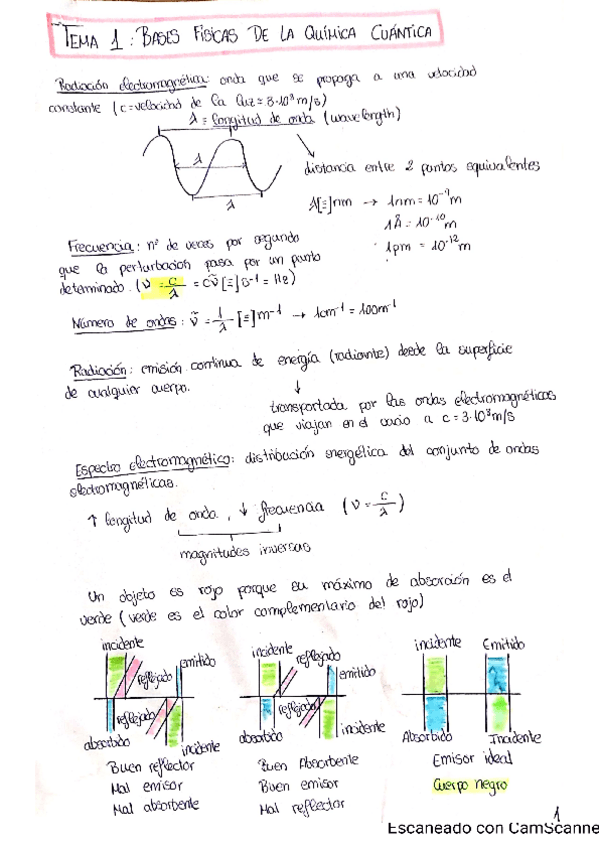 TEMA 1: BASES FÍSICAS DE LA QUÍMICA CUÁNTICA
Radiación electromagnética: onda que se propaga a una velocidad
constante (c=velocidad de la luz = 3·10⁸m/s)
λ = longitud de onda (wavelength)
λ
distancia entre 2 puntos equivalentes
λ
λ[=]nm → 1nm = 10⁻⁹m
1Å = 10⁻¹⁰m
1pm = 10⁻¹²m
Frecuencia: nº de veces por segundo
que la perturbación pasa por un punto
determinado. (ν = c/λ = cṽ [=] s⁻¹ = Hz)
Número de ondas: ṽ = 1/λ [=] m⁻¹ → 1cm⁻¹ = 100m⁻¹
Radiación: emisión continua de energía (radiante) desde la superficie
de cualquier cuerpo.
transportada por las ondas electromagnéticas
que viajan en el vacío a c = 3·10⁸m/s
Espectro electromagnético: distribución energética del conjunto de ondas
electromagnéticas.
↑ longitud de onda, ↓ frecuencia (ν = c/λ)
magnitudes inversas
Un objeto es rojo porque su máximo de absorción es el
verde (verde es el color complementario del rojo)
incidente emitido reflejado
reflejado absorbido incidente
Buen reflector
Mal emisor
Mal absorbente
incidente reflejado emitido
reflejado absorbido incidente
Buen Absorbente
Buen emisor
Mal reflector
incidente Emitido
Absorbido Incidente
Emisor ideal
Cuerpo negro
1
Escaneado con CamScanne